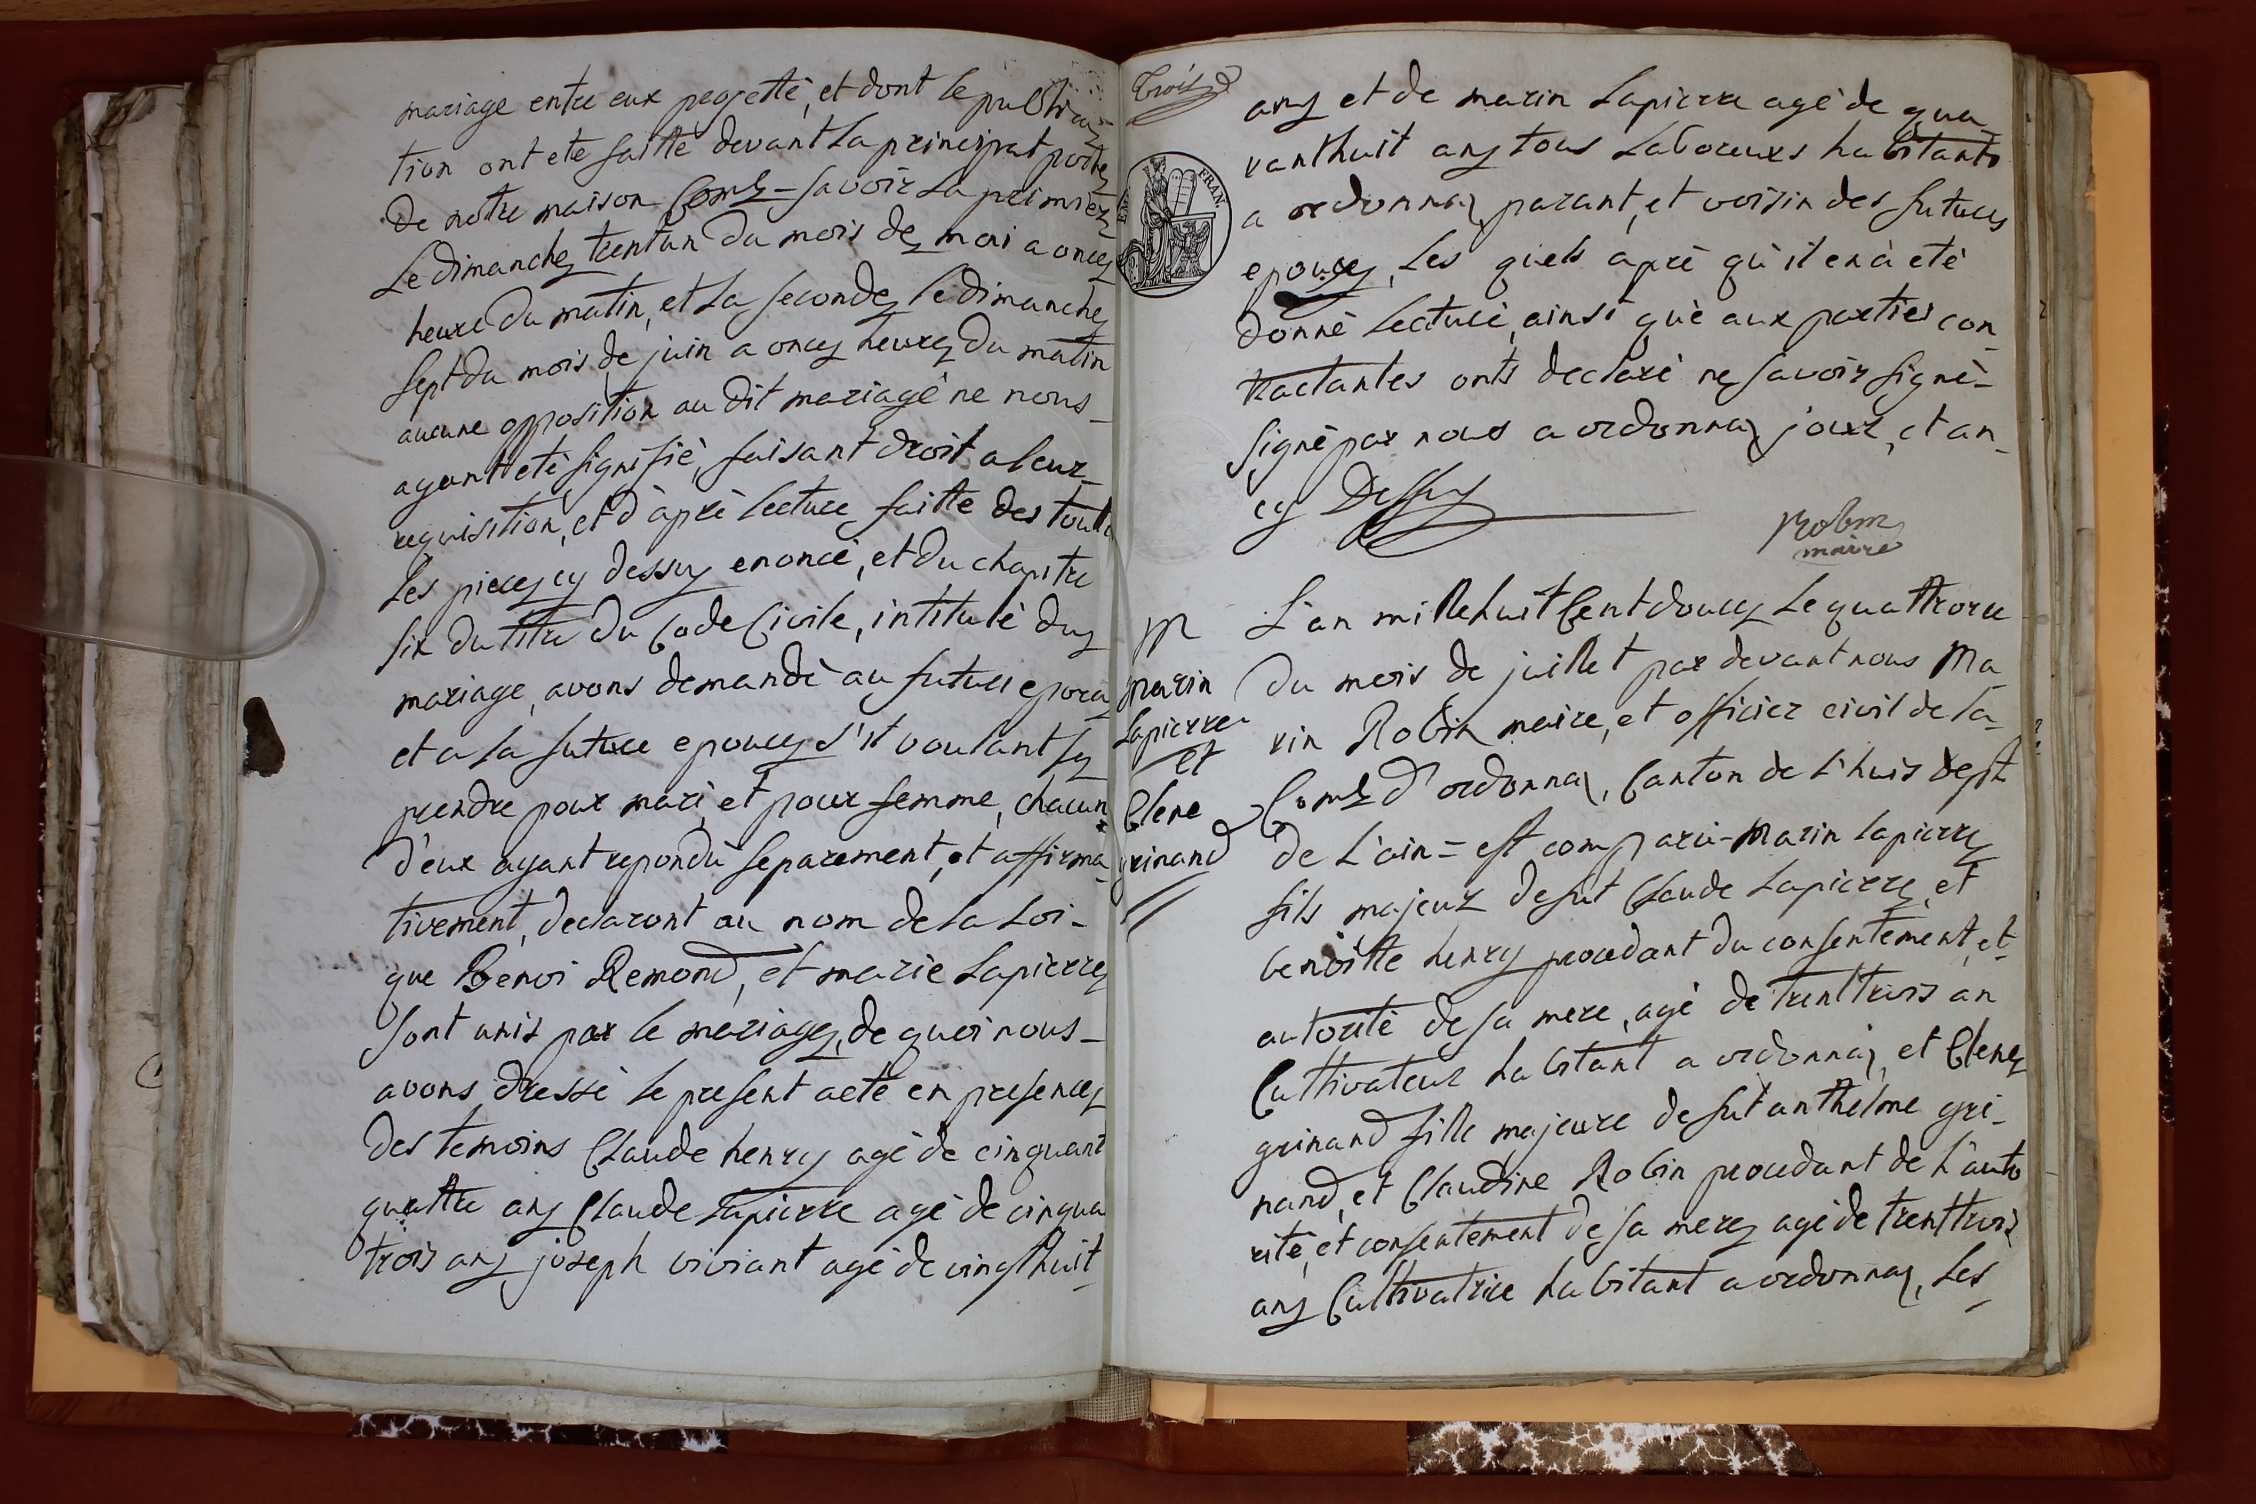 mariage entre eux progetté, et dont le publica
tion ont eté faitte devant la principal porte
de notre maison Com.e = savoir la premiere
Le dimanche trentun du mois de mai a once
heure du matin, et la seconde le dimanche
sept du mois de juin a once heures du matin
aucune opposition au dit mariage ne nous
ayant eté signifié, faisant droit a leur
requisition, et d'aprè lecture faitte des toutte
les pieces cy dessus enoncé, et du chapitre
six du titre du Code Civile, intitulé du
mariage, avons demandé au future epoux
et a la future epouce s'il voulant se
prendre pour mari, et pour femme, chacun
d'eux ayant repondu separement, et affirma-
tivement, declaront au nom de la Loi-
que Benoi Remond, et marie Lapierre
sont unis par le mariage, de quoi nous-
avons dressé le present acte en presence
des temoins Claude henry agé de cinquant
quattre ans Claude Lapierre agé de cinqua
trois ans joseph viviant agé de vingthuit-
Trois
EMP. FRAN.
ans et de marin Lapierre agé de qua-
ranthuit ans tous Laboreurs habitants
a ordonnaz parant, et voisin des futures
epouce, Les quels aprè qu'il en à eté
donné Lecture, ainsi què aux parties con-
tractantes onts declaré ne savoir signé-
signé par nous a ordonnaz jour, et an-
cy Dessus
Robin
maire
M
marin
Lapierre
et
Clene
grinand
L'an mille huit Cent douce Le quattrorce
du mois de juillet par devant nous Ma-
rin Robin maire, et officier civil de la-
Com.e d'ordonnaz, Canton de L'huis dept
de L'ain = est comparu - Marin lapierre
fils majeur defut Claude Lapierre, et
benoitte henry procedant du consentement, et
autorité de sa mere, agé de trenttrois an
Cultivateur habitant a ordonnaz, et Clene
grinand fille majeure de fut anthelme gri-
nand, et Claudine Robin procedant de L'auto
rité, et consentement de sa mere agé de trenttrois
ans Cultivatrice habitant a ordonnaz, Les-